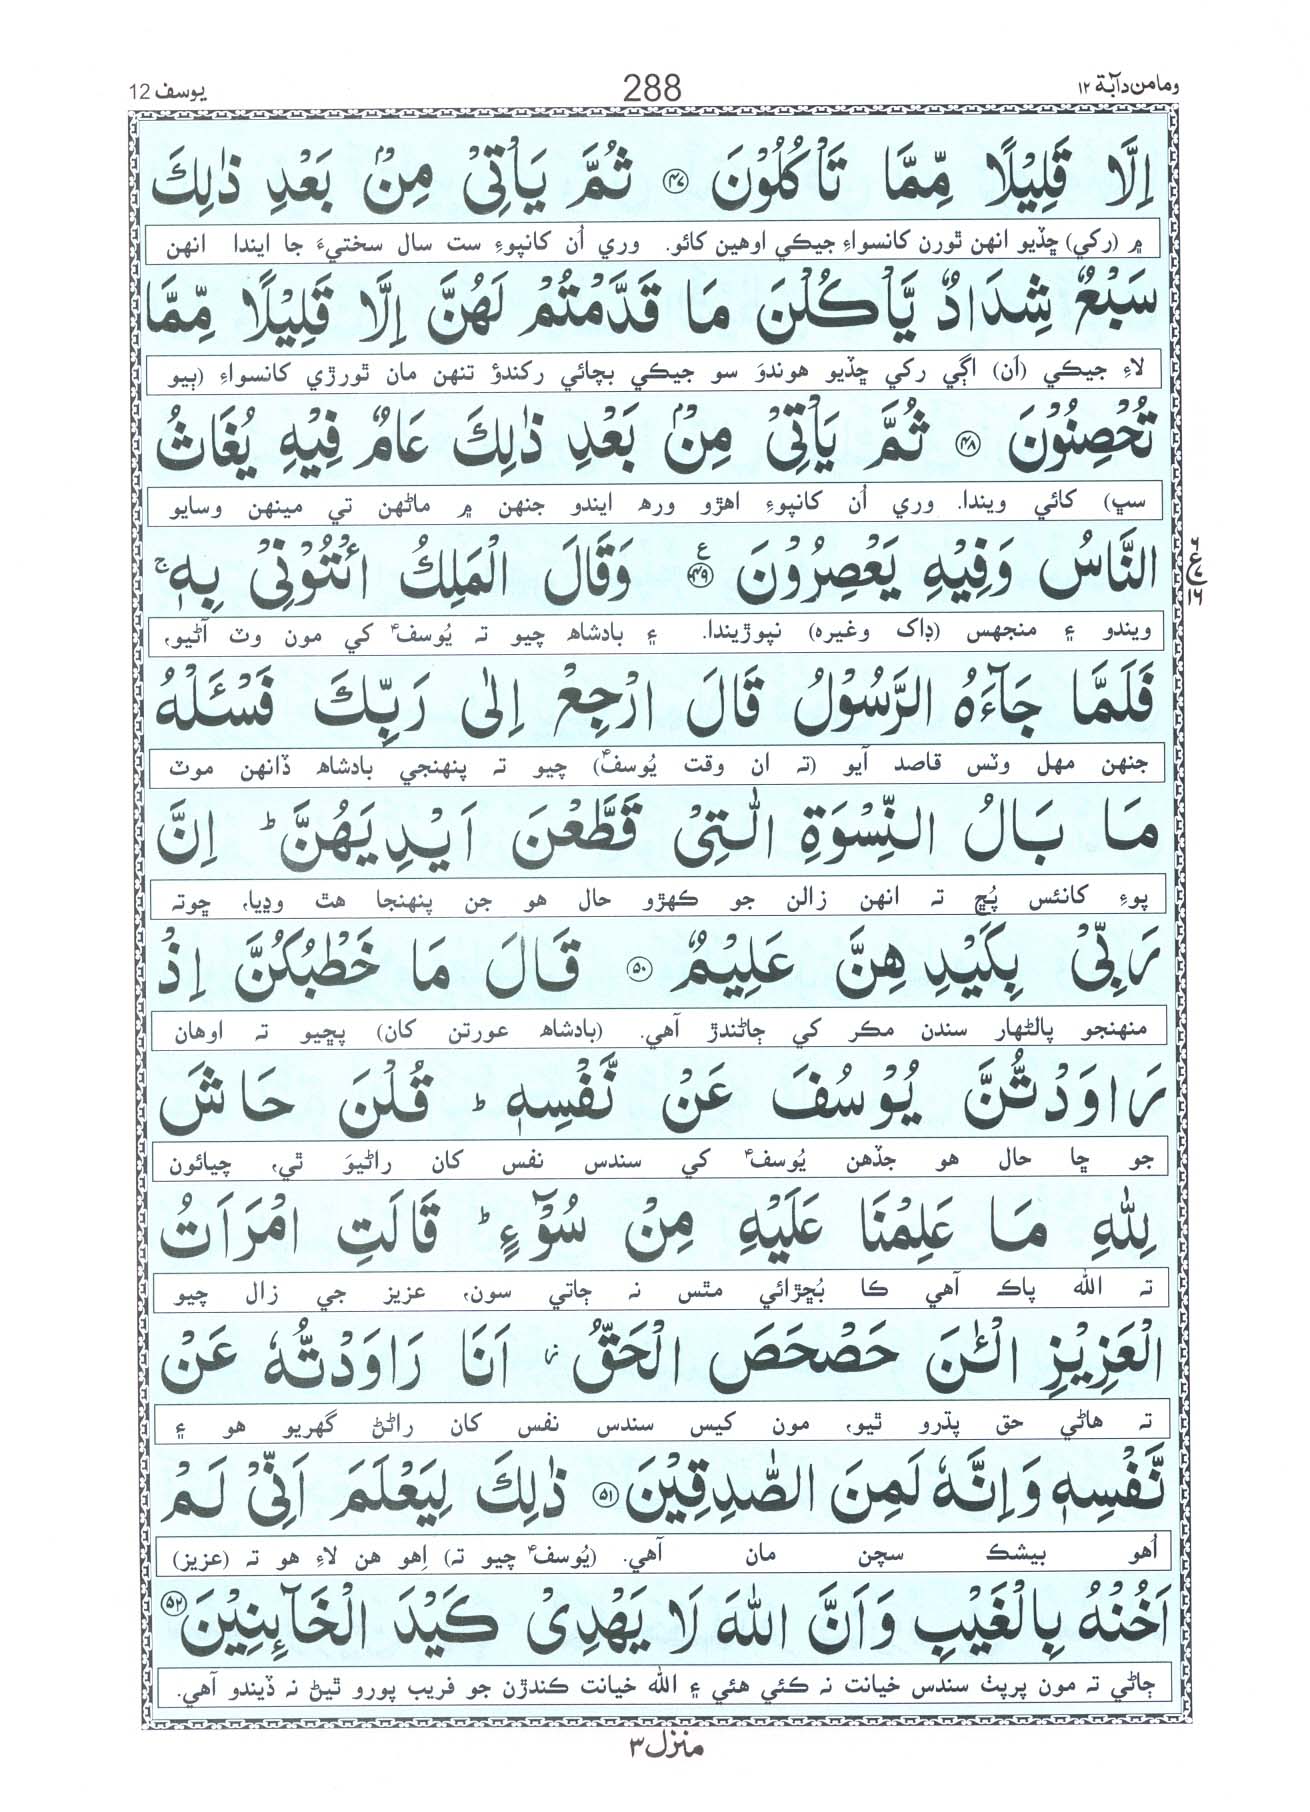 ومامن دآبة ١٢
288
يوسف 12
اِلَّا قَلِيْلًا مِّمَّا تَاْكُلُوْنَ ۝٤٧ ثُمَّ يَاْتِيْ مِنْۢ بَعْدِ ذٰلِكَ
۾ (رکي) ڇڏيو انهن ٿورن کانسواءِ جيڪي اوهين کائو. وري اُن کانپوءِ ست سال سختيءَ جا ايندا انهن
سَبْعٌ شِدَادٌ يَّاْكُلْنَ مَا قَدَّمْتُمْ لَهُنَّ اِلَّا قَلِيْلًا مِّمَّا
لاءِ جيڪي (اَن) اڳي رکي ڇڏيو هوندوَ سو جيڪي بچائي رکندؤ تنهن مان ٿورڙي کانسواءِ (ٻيو
تُحْصِنُوْنَ ۝٤٨ ثُمَّ يَاْتِيْ مِنْۢ بَعْدِ ذٰلِكَ عَامٌ فِيْهِ يُغَاثُ
سڀ) کائي ويندا. وري اُن کانپوءِ اهڙو ورھ ايندو جنهن ۾ ماڻهن تي مينهن وسايو
النَّاسُ وَفِيْهِ يَعْصِرُوْنَ ۝٤٩ ع وَقَالَ الْمَلِكُ ائْتُوْنِيْ بِهٖ ۚ
ويندو ۽ منجهس (ڊاک وغيره) نپوڙيندا. ۽ بادشاھ چيو تہ يُوسف ؑ کي مون وٽ آڻيو،
فَلَمَّا جَآءَهُ الرَّسُوْلُ قَالَ ارْجِعْ اِلٰى رَبِّكَ فَسْـَٔلْهُ
جنهن مهل وٽس قاصد آيو (تہ ان وقت يُوسف ؑ) چيو تہ پنهنجي بادشاھ ڏانهن موٽ
مَا بَالُ النِّسْوَةِ الّٰتِيْ قَطَّعْنَ اَيْدِيَهُنَّ ؕ اِنَّ
پوءِ کانئس پُڇ تہ انهن زالن جو ڪهڙو حال هو جن پنهنجا هٿ وڍيا، ڇوته
رَبِّيْ بِكَيْدِهِنَّ عَلِيْمٌ ۝٥٠ قَالَ مَا خَطْبُكُنَّ اِذْ
منهنجو پالڻهار سندن مڪر کي ڄاڻندڙ آهي. (بادشاھ عورتن کان) پڇيو تہ اوهان
رَاوَدْتُّنَّ يُوْسُفَ عَنْ نَّفْسِهٖ ؕ قُلْنَ حَاشَ
جو ڇا حال هو جڏهن يُوسف ؑ کي سندس نفس کان راڻيوَ ٿي، چيائون
لِلّٰهِ مَا عَلِمْنَا عَلَيْهِ مِنْ سُوْٓءٍ ؕ قَالَتِ امْرَاَتُ
تہ الله پاڪ آهي ڪا بُڇڙائي مٿس نہ ڄاتي سون، عزيز جي زال چيو
الْعَزِيْزِ الْـٰٔنَ حَصْحَصَ الْحَقُّ ۡ اَنَا رَاوَدْتُّهٗ عَنْ
تہ هاڻي حق پڌرو ٿيو، مون کيس سندس نفس کان راڻڻ گهريو هو ۽
نَّفْسِهٖ وَاِنَّهٗ لَمِنَ الصّٰدِقِيْنَ ۝٥١ ذٰلِكَ لِيَعْلَمَ اَنِّيْ لَمْ
اُهو بيشڪ سچن مان آهي. (يُوسف ؑ چيو تہ) اِهو هن لاءِ هو تہ (عزيز)
اَخُنْهُ بِالْغَيْبِ وَاَنَّ اللّٰهَ لَا يَهْدِيْ كَيْدَ الْخَآئِنِيْنَ ۝٥٢
ڄاڻي تہ مون پرپٺ سندس خيانت نہ ڪئي هئي ۽ الله خيانت ڪندڙن جو فريب پورو ٿيڻ نہ ڏيندو آهي.
منزل ٣